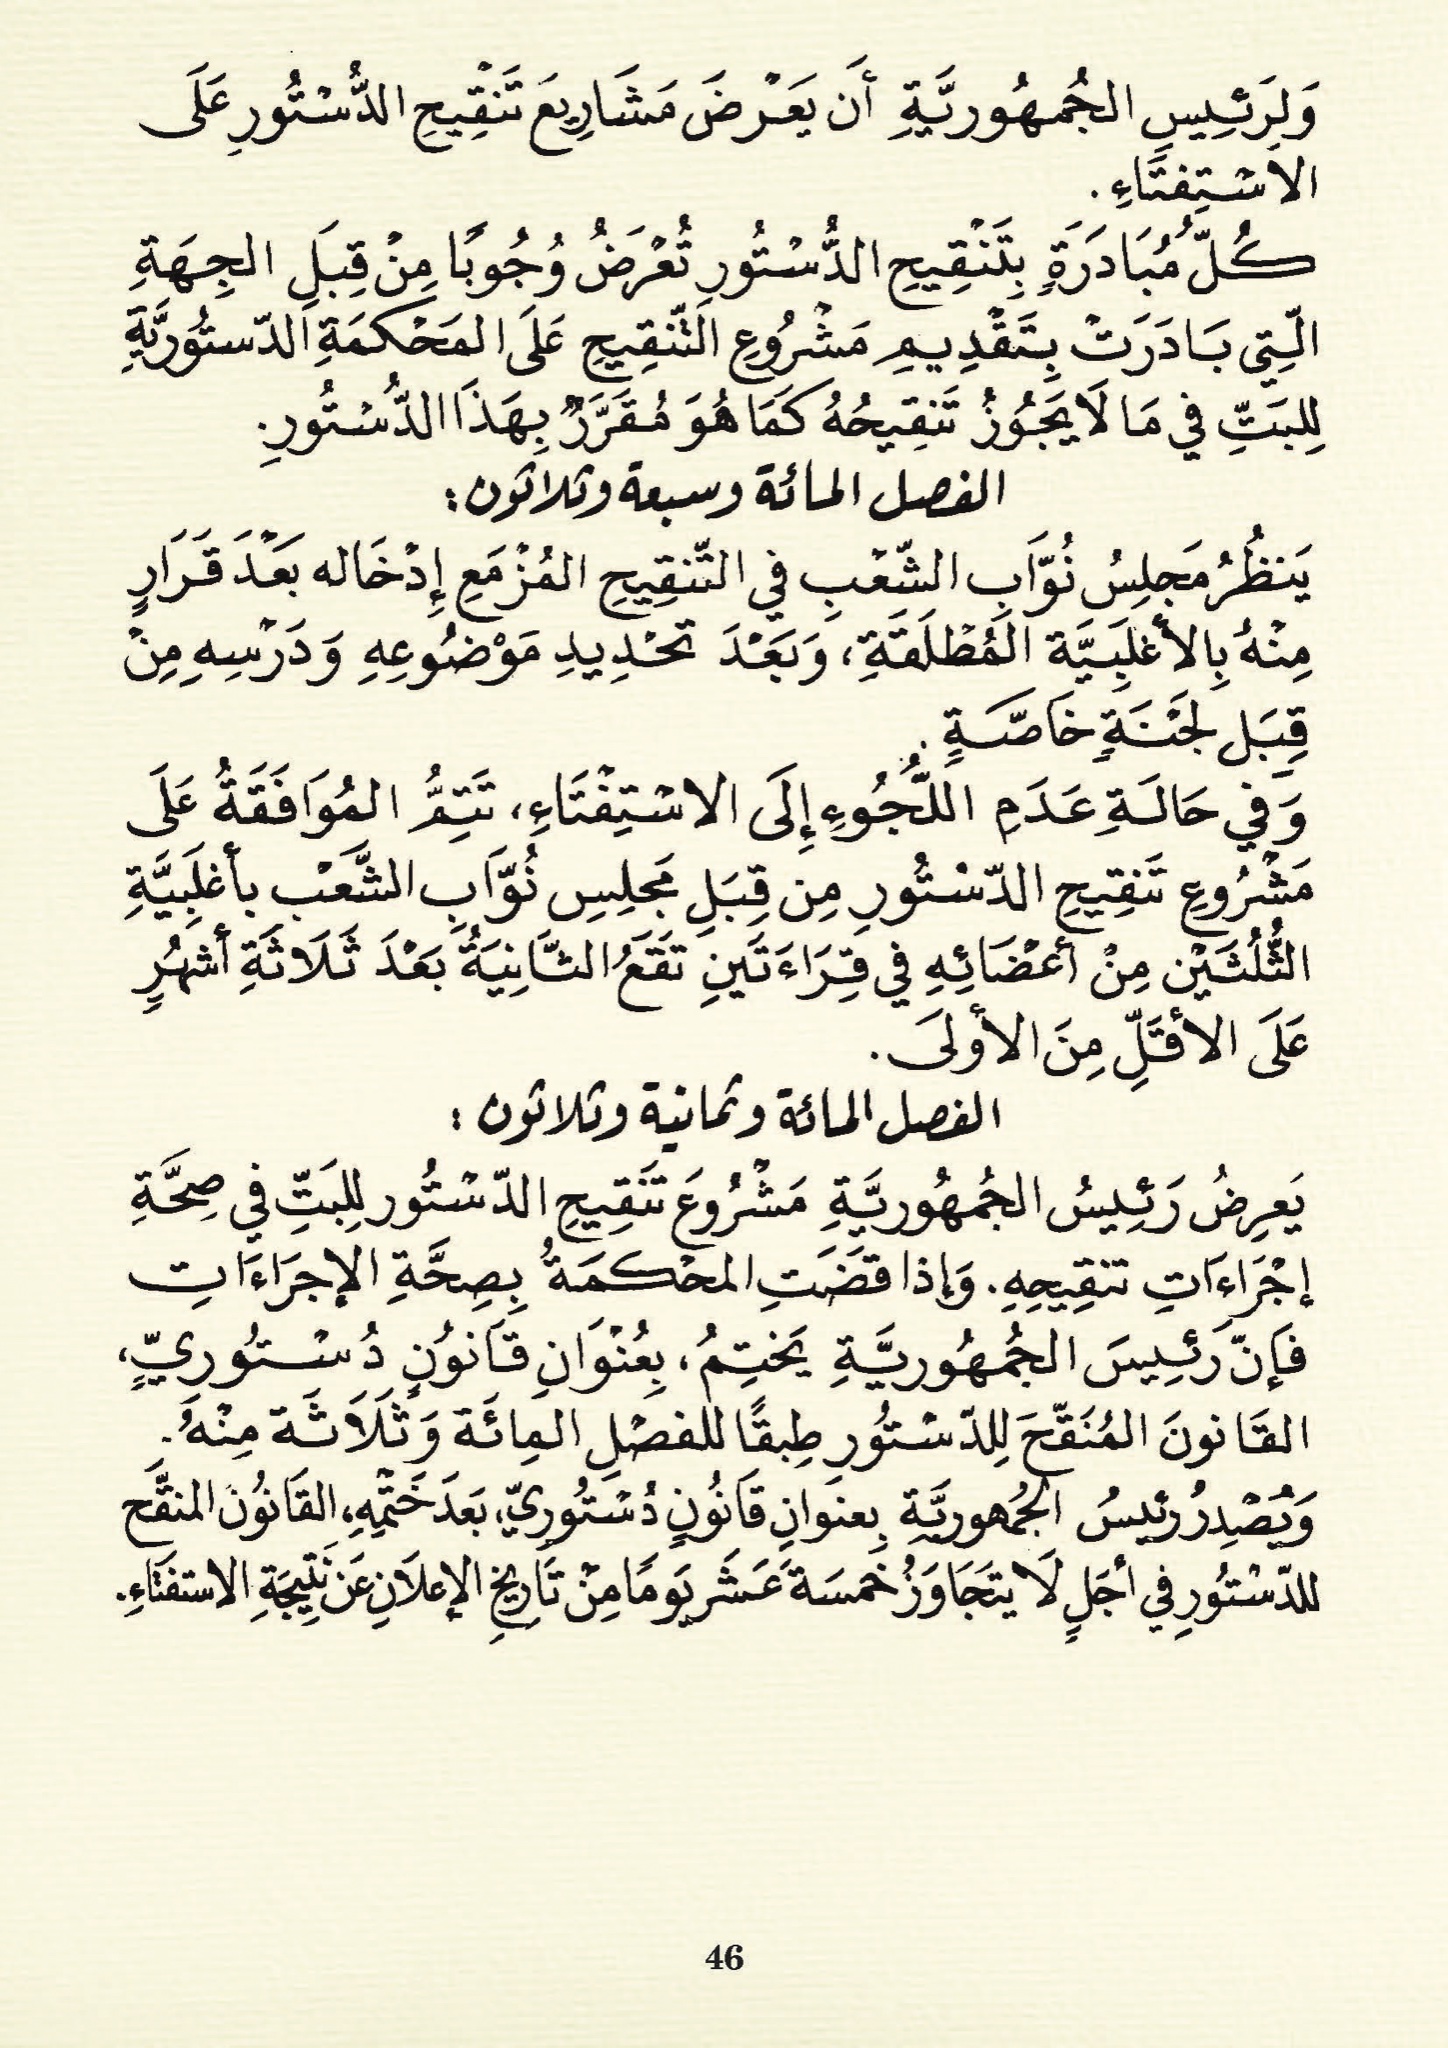 وَلِرَئِيسِ الجُمهُورِيَّةِ أَن يَعْرضَ مَشَارِيعَ تَنْقِيحِ الدُّسْتُورِ عَلَى
الاسْتِفتَاءِ.
كُلُّ مُبَادَرَةٍ بِتَنْقِيحِ الدُّسْتُورِ تُعْرَضُ وُجُوبًا مِنْ قِبَلِ الجِهَةِ
الّتِي بَادَرَتْ بِتَقْدِيمِ مَشْرُوعِ التَّنْقِيحِ عَلَى المَحْكَمَةِ الدّستُورِيَّةِ
لِلبَتِّ في مَا لَا يَجُوزُ تَنقِيحُهُ كَمَا هُوَ مُقَرَّرٌ بِهَذَا الدُّسْتُورِ.
الفصل المائة وسبعة وثلاثون:
يَنظُرُ مَجلِسُ نُوَّابِ الشّعْبِ في التَّنقِيحِ المُزْمَعِ إِدْخَاله بَعْدَ قَرَارٍ
مِنْهُ بِالأَغلَبِيَّة المُطْلَقَةِ، وَبَعْدَ تَحْدِيدِ مَوْضُوعِهِ وَدَرْسِهِ مِنْ
قِبَل لَجْنَةٍ خَاصَّةٍ.
وَفي حَالَةِ عَدَمِ اللُّجُوءِ إِلَى الاسْتِفْتَاءِ، تَتِمُّ المُوَافَقَةُ عَلَى
مَشْرُوعِ تَنقِيحِ الدّسْتُورِ مِن قِبَلِ مَجلِسِ نُوّابِ الشَّعْب بأغلَبِيَّةِ
الثُّلُثَيْن مِنْ أعْضَائِهِ في قِرَاءَتَينِ تَقَعُ الثَّانِيَةُ بَعْدَ ثَلَاثَةِ أشهُرٍ
عَلَى الأقَلِّ مِنَ الأولَى.
الفصل المائة وثمانية وثلاثون:
يَعرِضُ رَئِيسُ الجُمْهُورِيَّةِ مَشْرُوعَ تَنْقِيحِ الدّسْتُور لِلبَتِّ في صِحَّةِ
إجْرَاءَاتِ تنقِيحِهِ. وَإذا قضَتِ المحْكمَةُ بِصِحَّةِ الإجرَاءَاتِ
فَإنّ رَئِيسَ الجُمْهُورِيَّةِ يَختِمُ، بِعُنْوَانِ قَانُونٍ دُسْتُورِيٍّ،
القَانونَ المُنَقّحَ لِلدّسْتُورِ طِبقًا للفصْلِ المِائَة وَثَلَاثَة مِنْهُ.
وَيُصْدِرُ رئيسُ الجُمهوريَّةِ بِعنوَانِ قَانُونٍ دُسْتُورِيٍّ، بَعدَ خَتْمِهِ، القَانُونَ المنقَّح
للدّسْتُورِ في أجَلٍ لَا يتَجَاوَزُ خَمسَةَ عَشَر يَومًا مِنْ تَارِيخِ الإعلَانِ عَن نَتِيجَةِ الاستفتَاءِ.
46